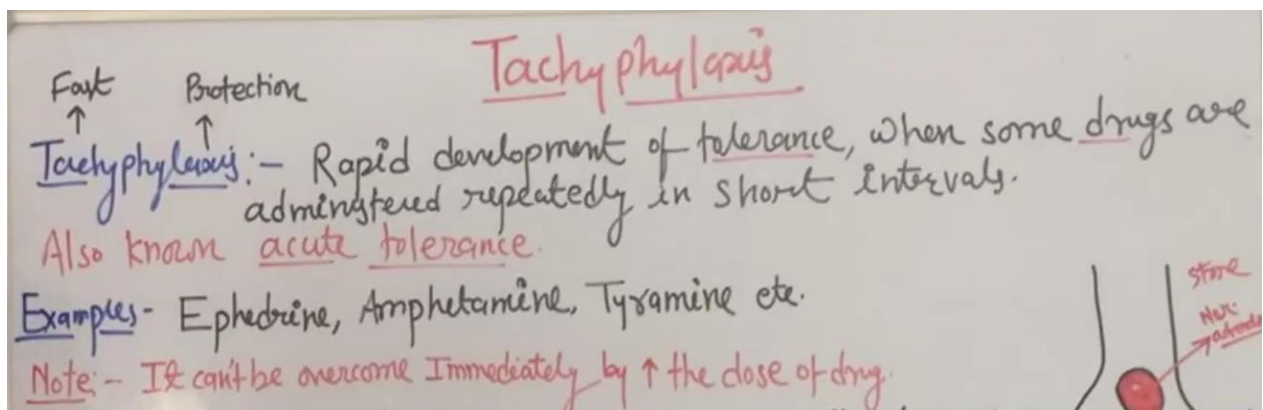 Tachyphylaxis
Fast Protection
↑ ↑
Tachyphylaxis:- Rapid development of tolerance, when some drugs are
adminstered repeatedly in short intervals.
Also known acute tolerance.
Examples- Ephedrine, Amphetamine, Tyramine etc.
Note:- It can't be overcome Immediately by ↑ the dose of drug.
store